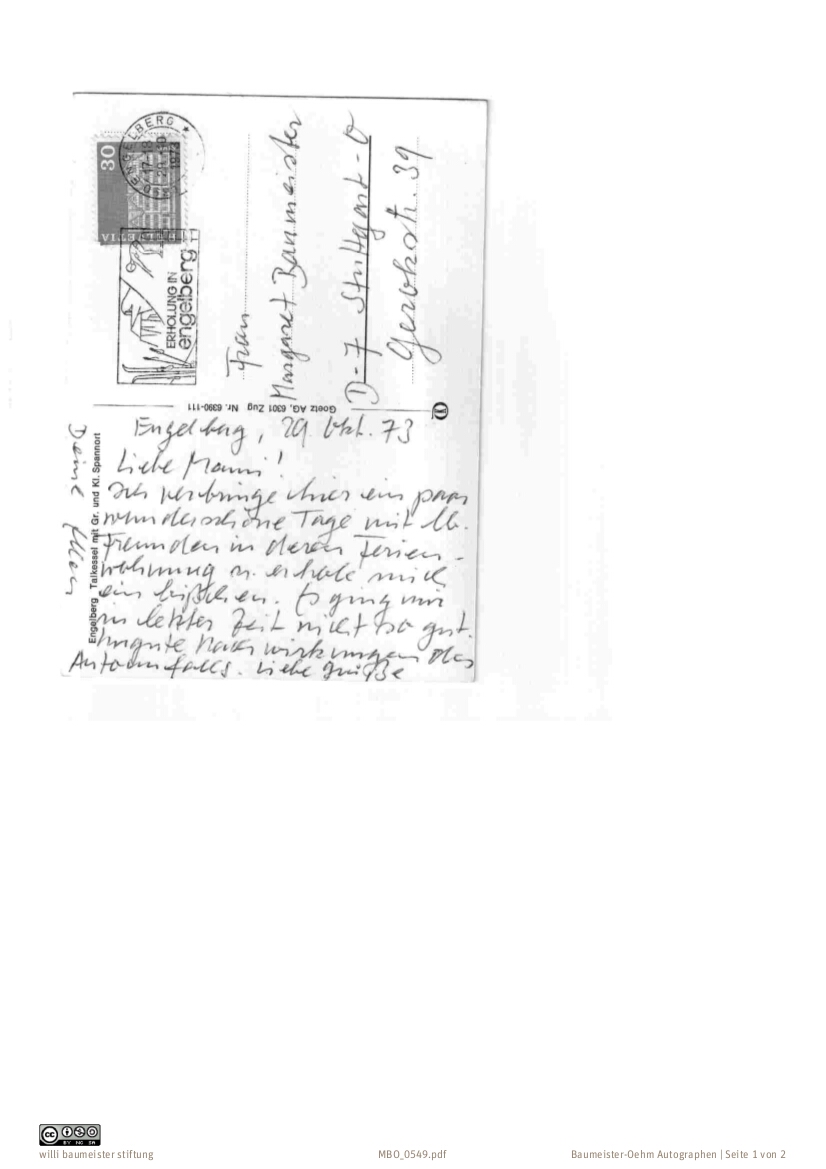 Engelberg, 29. Okt. 73
Liebe Mami!
Ich verbringe hier ein paar
wunderschöne Tage mit lb.
Freunden in deren Ferien-
wohnung u. erhole mich
ein bißchen. Es ging mir
in letzter Zeit nicht so gut.
Ungute Nachwirkungen des
Autounfalls. Liebe Grüße
Deine
Engelberg Talkessel mit Gr. und Kl. Spannort
Goetz AG, 6301 Zug Nr. 6390-111
Frau
Margaret Baumeister
D-7 Stuttgart-O
Gerokstr. 39
30
HELVETIA
ENGELBERG
1973
ERHOLUNG IN
engelberg
CC BY NC SA
willi baumeister stiftung
MBO_0549.pdf
Baumeister-Oehm Autographen | Seite 1 von 2